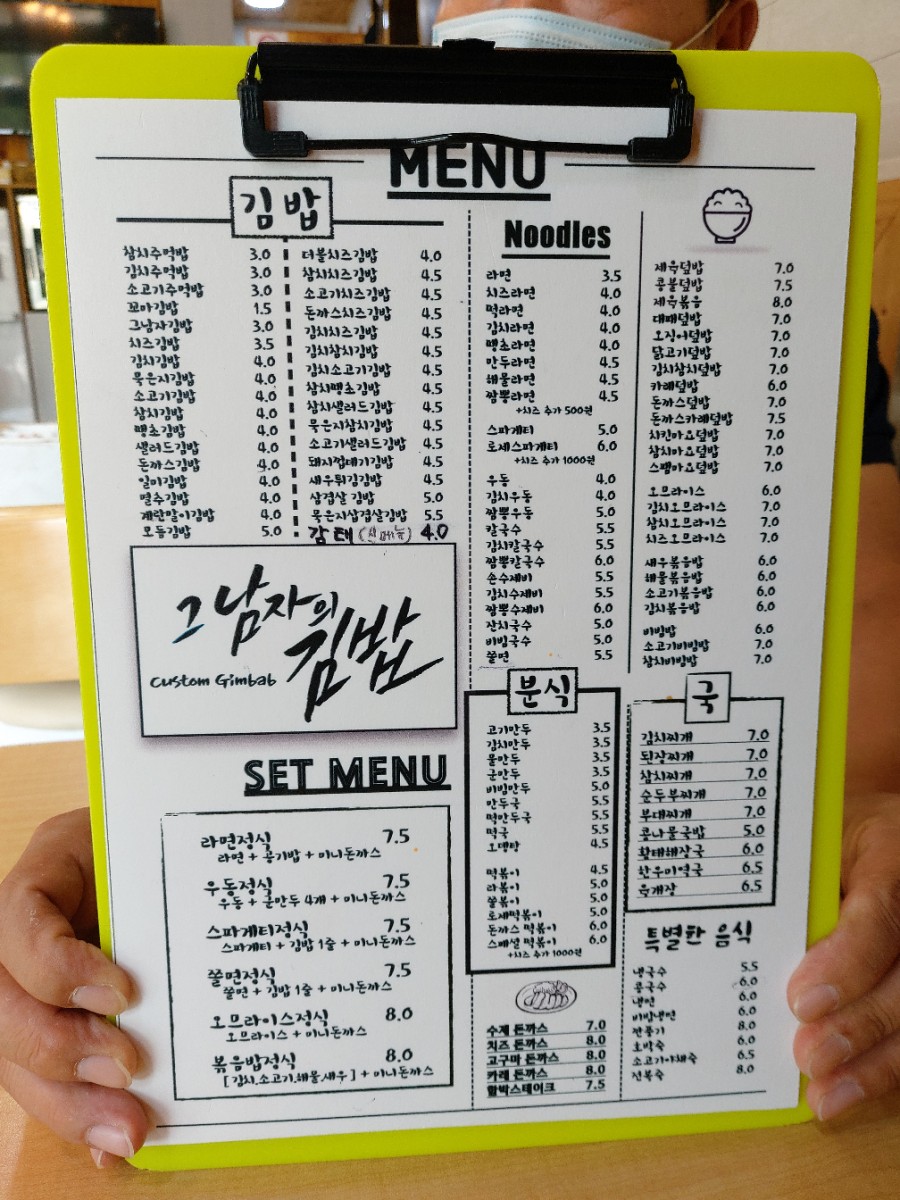 MENU
김밥
참치주먹밥 3.0
김치주먹밥 3.0
소고기주먹밥 3.0
꼬마김밥 1.5
그남자김밥 3.0
치즈김밥 3.5
김치김밥 4.0
묵은지김밥 4.0
소고기김밥 4.0
참치김밥 4.0
땡초김밥 4.0
샐러드김밥 4.0
돈까스김밥 4.0
일미김밥 4.0
멸추김밥 4.0
계란말이김밥 4.0
모듬김밥 5.0
더블치즈김밥 4.0
참치치즈김밥 4.5
소고기치즈김밥 4.5
돈까스치즈김밥 4.5
김치치즈김밥 4.5
김치참치김밥 4.5
김치소고기김밥 4.5
참치땡초김밥 4.5
참치샐러드김밥 4.5
묵은지참치김밥 4.5
소고기샐러드김밥 4.5
돼지껍데기김밥 4.5
새우튀김김밥 4.5
삼겹살김밥 5.0
묵은지삼겹살김밥 5.5
감태(신메뉴) 4.0
그남자의 김밥
Custom Gimbab
SET MENU
라면정식 7.5
라면 + 공기밥 + 미니돈까스
우동정식 7.5
우동 + 군만두 4개 + 미니돈까스
스파게티정식 7.5
스파게티 + 김밥 1줄 + 미니돈까스
쫄면정식 7.5
쫄면 + 김밥 1줄 + 미니돈까스
오므라이스정식 8.0
오므라이스 + 미니돈까스
볶음밥정식 8.0
[김치.소고기.해물.새우] + 미니돈까스
Noodles
라면 3.5
치즈라면 4.0
떡라면 4.0
김치라면 4.0
땡초라면 4.0
만두라면 4.5
해물라면 4.5
짬뽕라면 4.5
+치즈 추가 500원
스파게티 5.0
로제스파게티 6.0
+치즈 추가 1000원
우동 4.0
김치우동 4.0
짬뽕우동 5.0
칼국수 5.5
김치칼국수 5.5
짬뽕칼국수 6.0
손수제비 5.5
김치수제비 5.5
짬뽕수제비 6.0
잔치국수 5.0
비빔국수 5.0
쫄면 5.5
분식
고기만두 3.5
김치만두 3.5
물만두 3.5
군만두 3.5
비빔만두 5.0
만두국 5.5
떡만두국 5.5
떡국 5.5
오뎅탕 4.5
떡볶이 4.5
라볶이 5.0
쫄볶이 5.0
로제떡볶이 5.0
돈까스 떡볶이 6.0
스페셜 떡볶이 6.0
+치즈 추가 1000원
수제 돈까스 7.0
치즈 돈까스 8.0
고구마 돈까스 8.0
카레 돈까스 8.0
함박스테이크 7.5
제육덮밥 7.0
콩불덮밥 7.5
제육볶음 8.0
대패덮밥 7.0
오징어덮밥 7.0
닭고기덮밥 7.0
김치참치덮밥 7.0
카레덮밥 6.0
돈까스덮밥 7.0
돈까스카레덮밥 7.5
치킨마요덮밥 7.0
참치마요덮밥 7.0
스팸마요덮밥 7.0
오므라이스 6.0
김치오므라이스 7.0
참치오므라이스 7.0
치즈오므라이스 7.0
새우볶음밥 6.0
해물볶음밥 6.0
소고기볶음밥 6.0
김치볶음밥 6.0
비빔밥 6.0
소고기비빔밥 7.0
참치비빔밥 7.0
국
김치찌개 7.0
된장찌개 7.0
참치찌개 7.0
순두부찌개 7.0
부대찌개 7.0
콩나물국밥 5.0
황태해장국 6.0
한우미역국 6.5
육개장 6.5
특별한 음식
냉국수 5.5
콩국수 6.0
냉면 6.0
비빔냉면 6.0
깐풍기 8.0
호박죽 6.0
소고기야채죽 6.5
전복죽 8.0